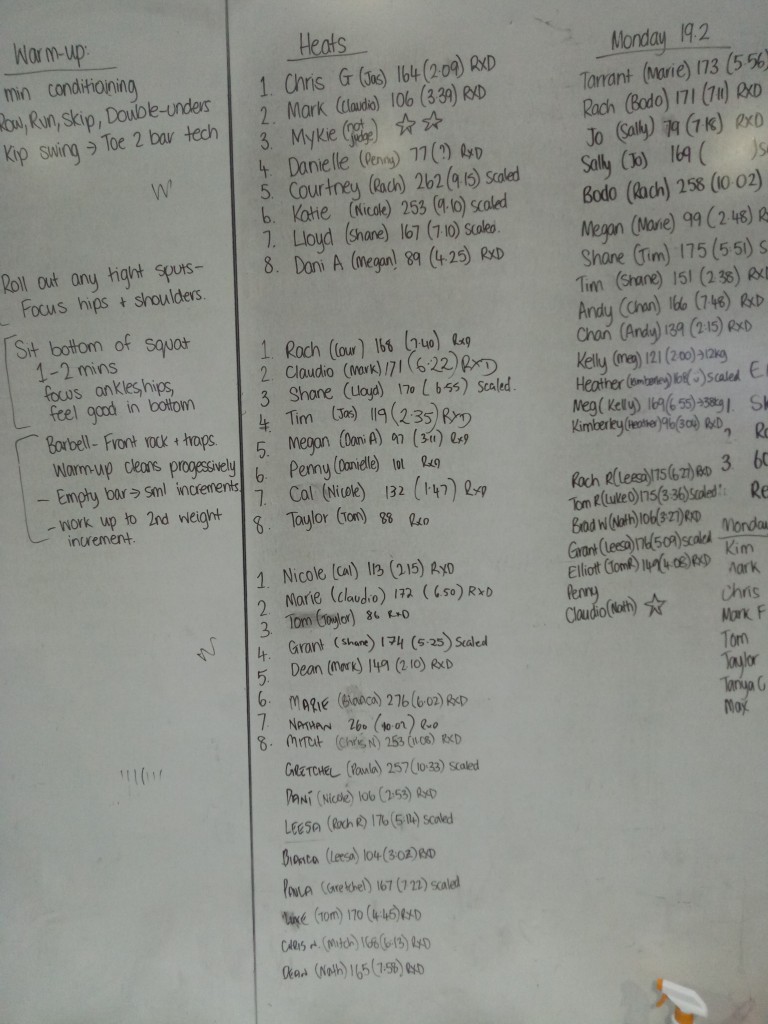 Warm-up:
min conditioning
Row, Run, Skip, Double-unders
Kip swing → Toe 2 bar tech
Roll out any tight spots-
Focus hips + shoulders.
Sit bottom of squat
1-2 mins
focus ankles, hips,
feel good in bottom
Barbell- Front rock + traps.
Warm-up cleans progessively
- Empty bar → small increments
- work up to 2nd weight
increment.
Heats
1. Chris G (Jas) 164 (2.09) RxD
2. Mark (Claudio) 106 (3.39) RxD
3. Mykie (not judge) ☆ ☆
4. Danielle (Penny) 77 (?) RxD
5. Courtney (Rach) 262 (9.15) Scaled
6. Katie (Nicole) 253 (9.10) Scaled
7. Lloyd (Shane) 167 (7.10) Scaled.
8. Dani A (megan) 89 (4.25) RXD
1. Rach (Lour) 168 (7.40) RxD
2. Claudio (Mark) 171 (6.22) RXD
3 Shane (Lloyd) 170 (6.55) Scaled.
4. Tim (Jas) 119 (2.35) RxD
5. Megan (Dani A) 97 (3.11) RxD
6. Penny (Danielle) 101 RxD
7. Cal (Nicole) 132 (1.47) RxD
8. Taylor (Tom) 88 RxD
1. Nicole (Cal) 113 (2.15) RXD
2. Marie (Claudio) 172 (6.50) RXD
3. Tom (Taylor) 86 RXD
4. Grant (Shane) 174 (5.25) Scaled
5. Dean (Mark) 149 (2.10) RXD
6. MARIE (Bianca) 276 (6.02) RXD
7. NATHAN 260 (10.07) RXD
8. MITCH (Chris N) 253 (11.08) RXD
GRETCHEL (Paula) 257 (10.33) Scaled
DANI (Nicole) 106 (2.53) RXD
LEESA (Rach R) 176 (5.14) Scaled
BIANCA (Leesa) 104 (3.02) RXD
PAULA (Gretchel) 167 (7.22) Scaled
LUKE (Tom) 170 (4.45) RXD
CHRIS N. (Mitch) 168 (6.13) RXD
DEAN (Nath) 165 (7.58) RXD
Monday 19.2
Tarrant (Marie) 173 (5.56)
Rach (Bodo) 171 (7.11) RXD
Jo (Sally) 79 (7.18) RXD
Sally (Jo) 169 ( )
Bodo (Rach) 258 (10.02)
Megan (Marie) 99 (2.48)
Shane (Tim) 175 (5.51) S
Tim (Shane) 151 (2.38) RX
Andy (Chan) 166 (7.48) RXD
Chan (Andy) 139 (2.15) RXD
Kelly (Meg) 121 (2.00) → 12kg
Heather (Kimberley) Scaled
Meg (Kelly) 169 (6.55) → 38kg
Kimberley (Heather) 96 (3.04) RXD
Rach R (Leesa) 175 (6.27) RXD
Tom R (Luke O) 175 (3.36) Scaled
Brad W (Nath) 106 (3.27) RXD
Grant (Leesa) 176 (5.09) Scaled
Elliott (Tom R) 149 (4.08) RXD
Penny
Claudio (Nath) ☆
1. Sk
3. 60
Re
Monday
Kim
Mark
Chris
Mark F
Tom
Taylor
Tanya C
Max